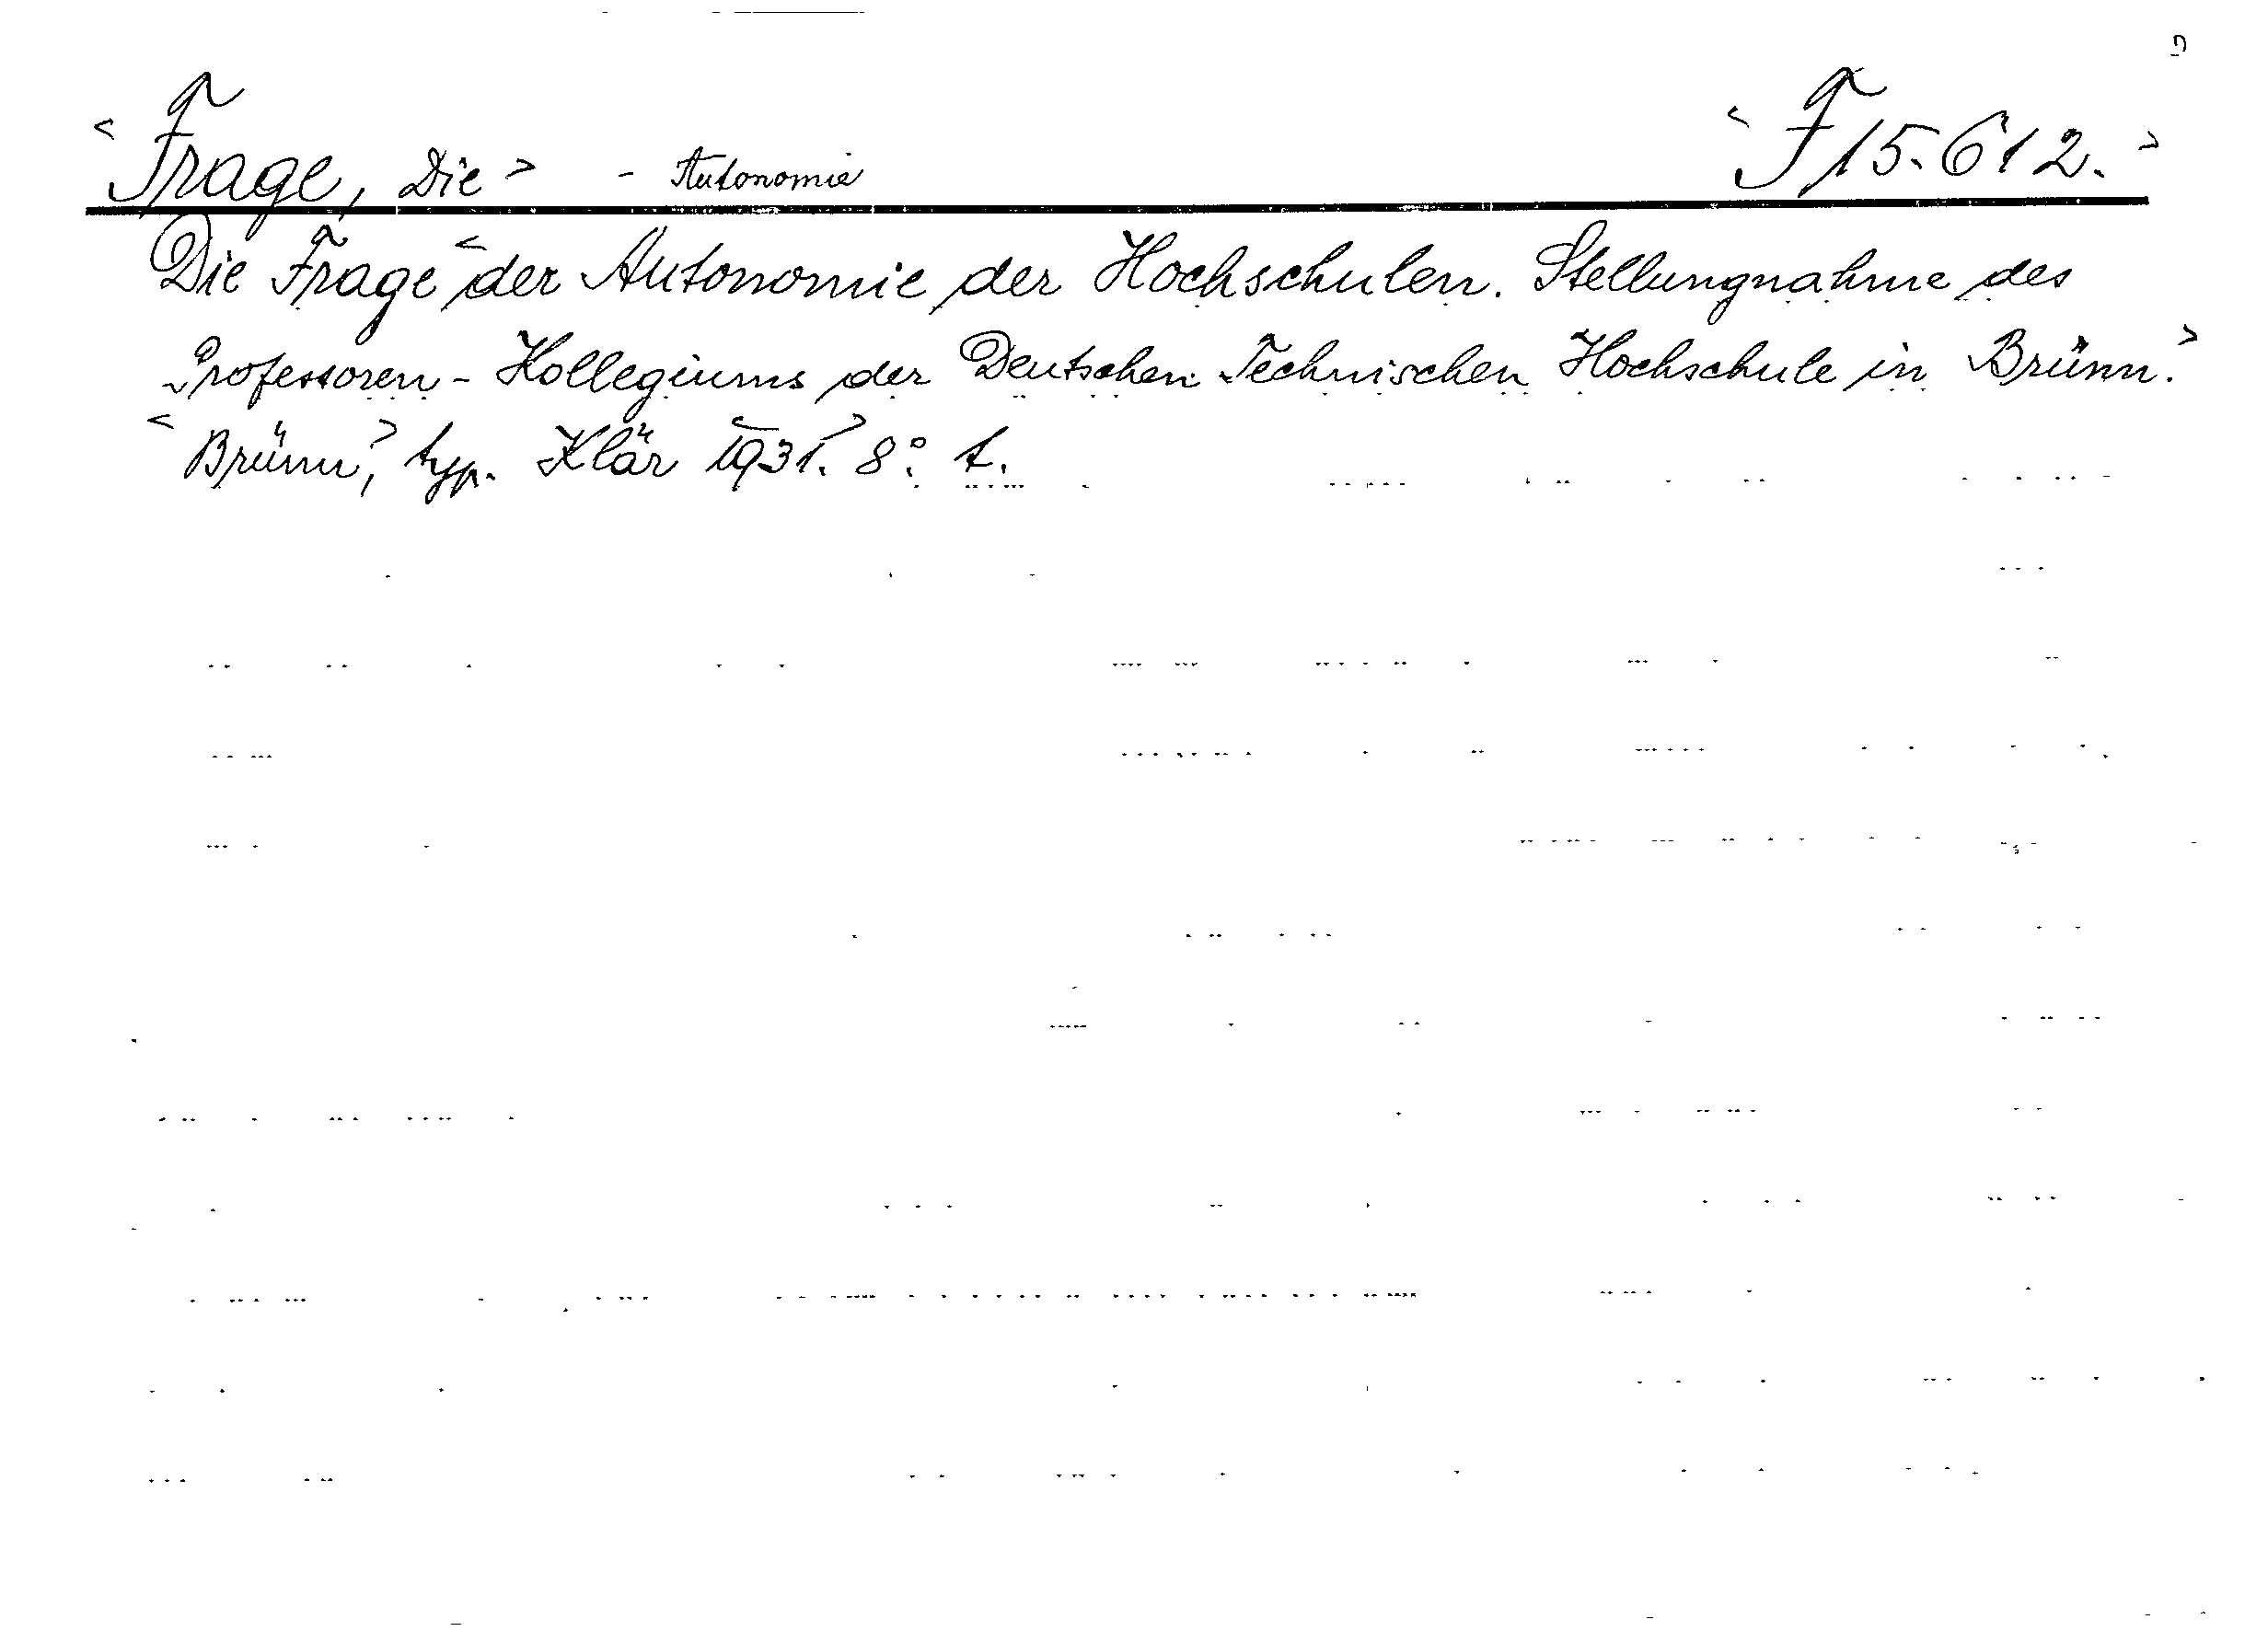 <Frage, Die> - Autonomie <F 15.612.>
Die Frage <der Autonomie der Hochschulen. Stellungnahme des
Professoren-Kollegiums der Deutschen Technischen Hochschule in Brünn.>
<Brünn>, typ. Klär <1931.> 8°. t.